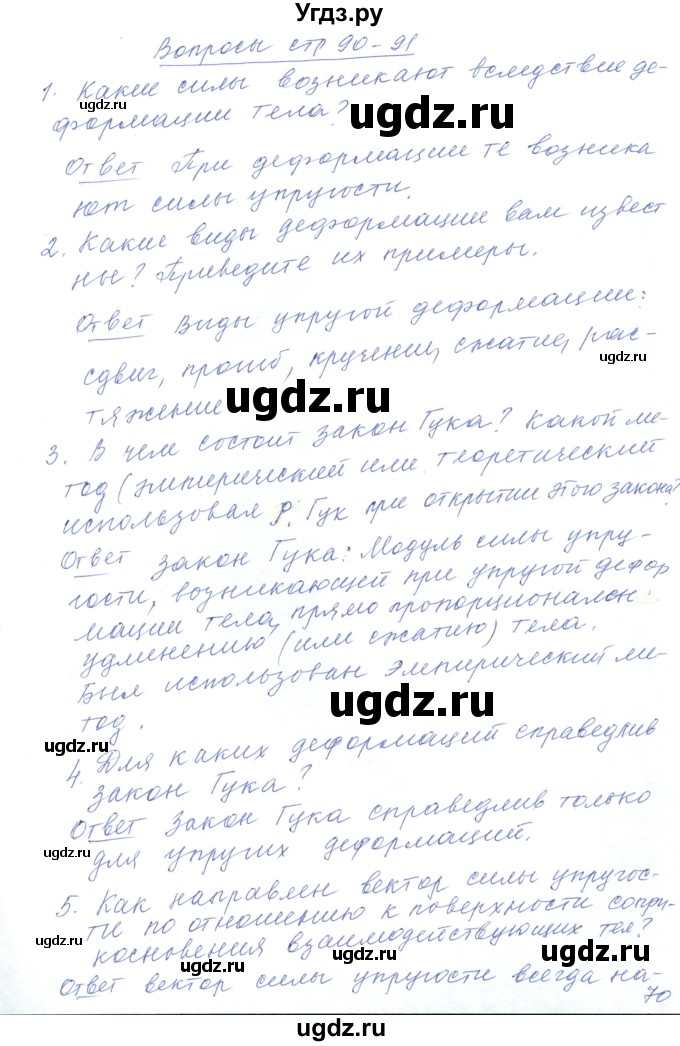 Угдз.ру
Вопросы стр 90-91
1. Какие силы возникают вследствие де-
ugdz.ru
формации тела?
ugdz.ru
Ответ При деформации те возника
ugdz.ru
ют силы упругости.
2. Какие виды деформации вам извест
ны? Приведите их примеры.
Ответ Виды упругой деформации:
сдвиг, прогиб, кручении, сжатие, рас-
ugdz.ru
тяжение
ugdz.ru
3. В чем состоит закон Гука? Какой ме-
тод (эмпирический или теоретический
использовал Р. Гук при открытии этого закона?
Ответ Закон Гука: Модуль силы упру-
гости, возникающей при упругой дефор
мации тела, прямо пропорционален
удменению (или сжатию) тела.
Был использован эмпирический ме-
ugdz.ru
тод.
ugdz.ru
4. Для каких деформаций справедлив
закон Гука?
Ответ Закон Гука справедлив только
ugdz.ru
для упругих деформаций.
5. Как направлен вектор силы упругос-
ти по отношению к поверхности сопри-
ugdz.ru
косновения взаимодействующих тел?
ugdz.ru
Ответ вектор силы упругости всегда на-
70
ugdz.ru